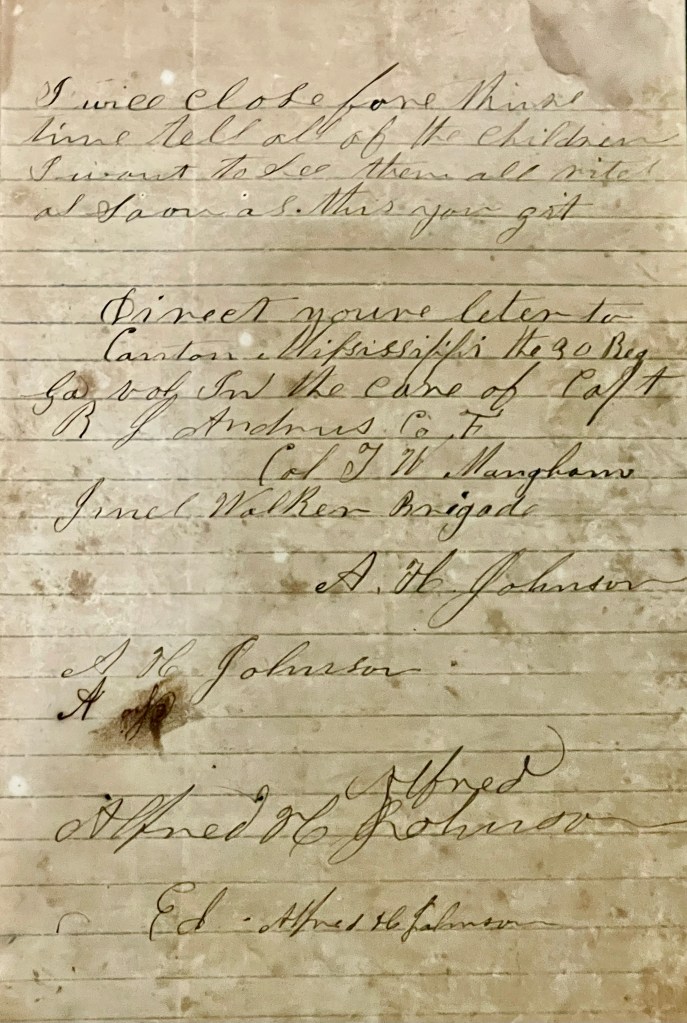 I will close fore this
time tell all of the children
I want to see them all rite
as soon as this you git
Direct youre leter to
Canton Mississippi the 30 Reg
Ga vol In the care of Capt
R J Andrus Co F
Col T W Mangham
Walker Brigade
A. H. Johnson
A H Johnson
A
Alfred
Alfred H Johnson
Ed Alfred H Johnson